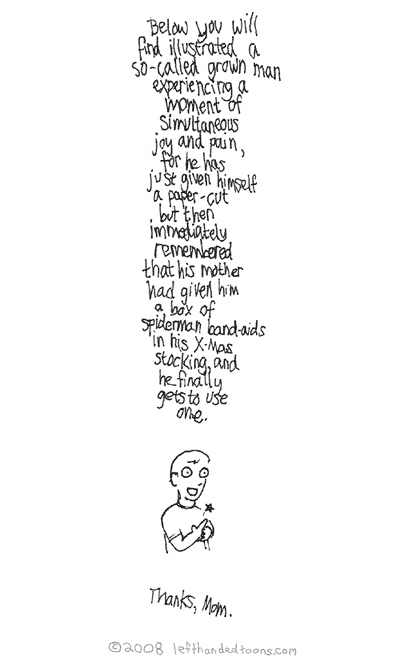 Below you will
find illustrated a
so-called grown man
experiencing a
moment of
simultaneous
joy and pain,
for he has
just given himself
a paper-cut
but then
immediately
remembered
that his mother
had given him
a box of
spiderman band-aids
in his X-Mas
stocking, and
he finally
gets to use
one.
Thanks, Mom.
©2008 lefthandedtoons.com